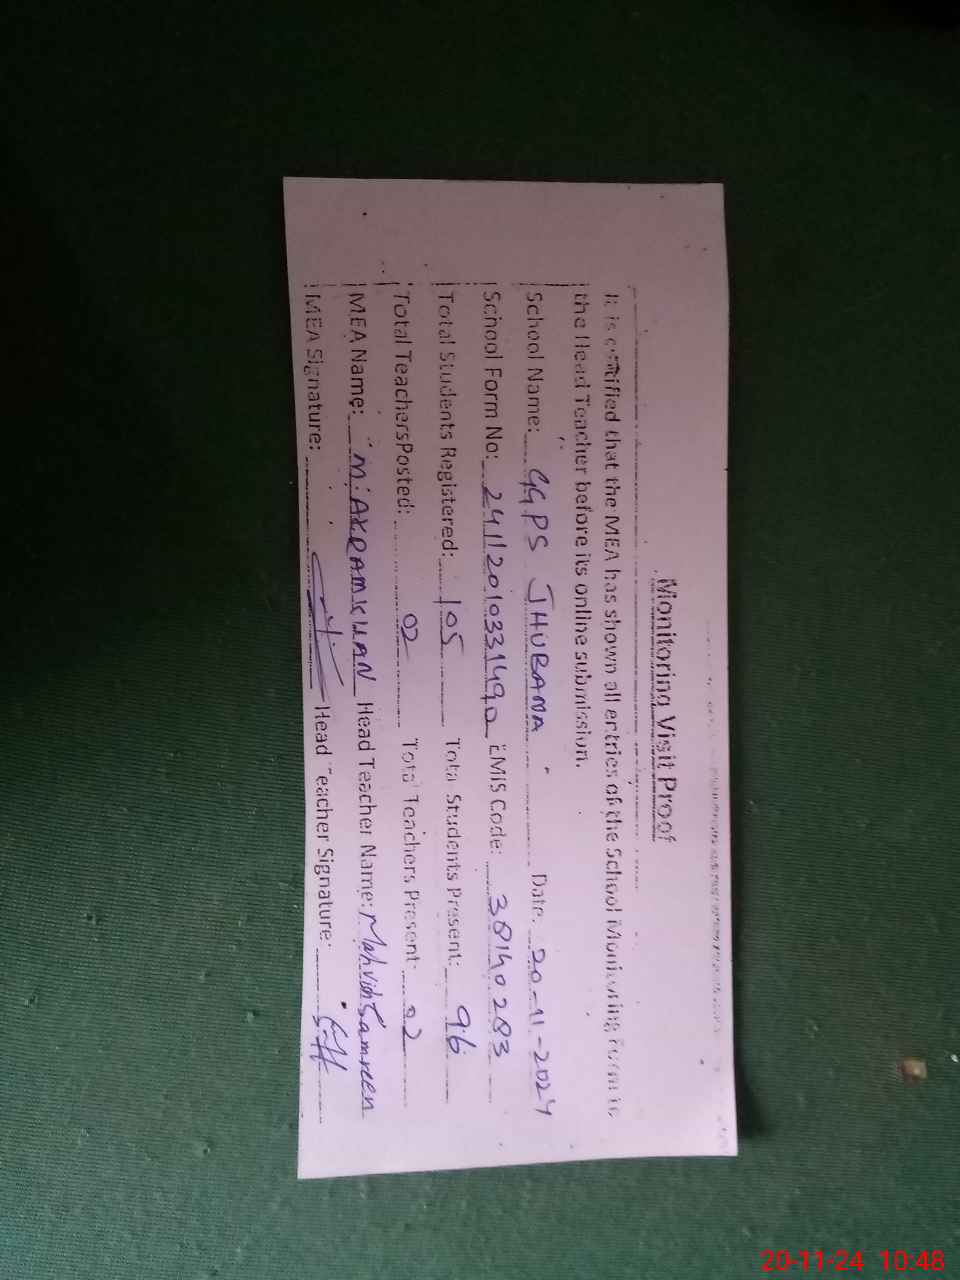 Monitoring Visit Proof
It is certified that the MEA has shown all entries of the School Monitoring Form to
the Head Teacher before its online submission.
School Name: GGPS JHUBANA Date. 20-11-2024
School Form No: 24112010331490 EMIS Code: 38140283
Total Students Registered: 105 Total Students Present: 96
Total TeachersPosted: 02 Total Teachers Present: 02
MEA Name: M. AKRAM KHAN Head Teacher Name: Mahvish Samreen
MEA Signature: Head Teacher Signature:
20-11-24 10:48